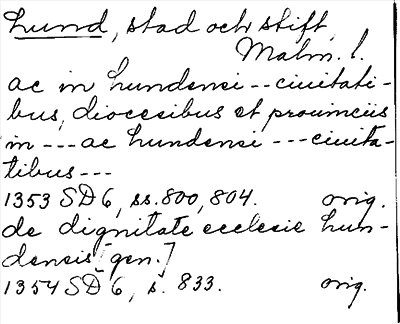 Lund, stad och stift,
Malm. l.
ac in Lundensi -- ciuitati-
bus, diocesibus et prouinciis
in --- ac Lundensi --- ciuita-
tibus ---
1353 SD 6, ss. 800, 804. orig.
de dignitate ecclesie Lun-
densis [gen.]
1354 SD 6, s. 833. orig.